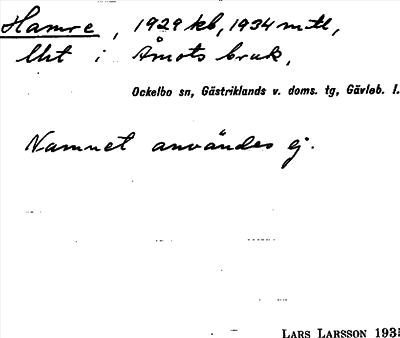 Hamre, 1929 kb, 1934 mtl,
lht i Åmots bruk,
Ockelbo sn, Gästriklands v. doms. tg, Gävleb. l.
Namnet användes ej.
LARS LARSSON 1935